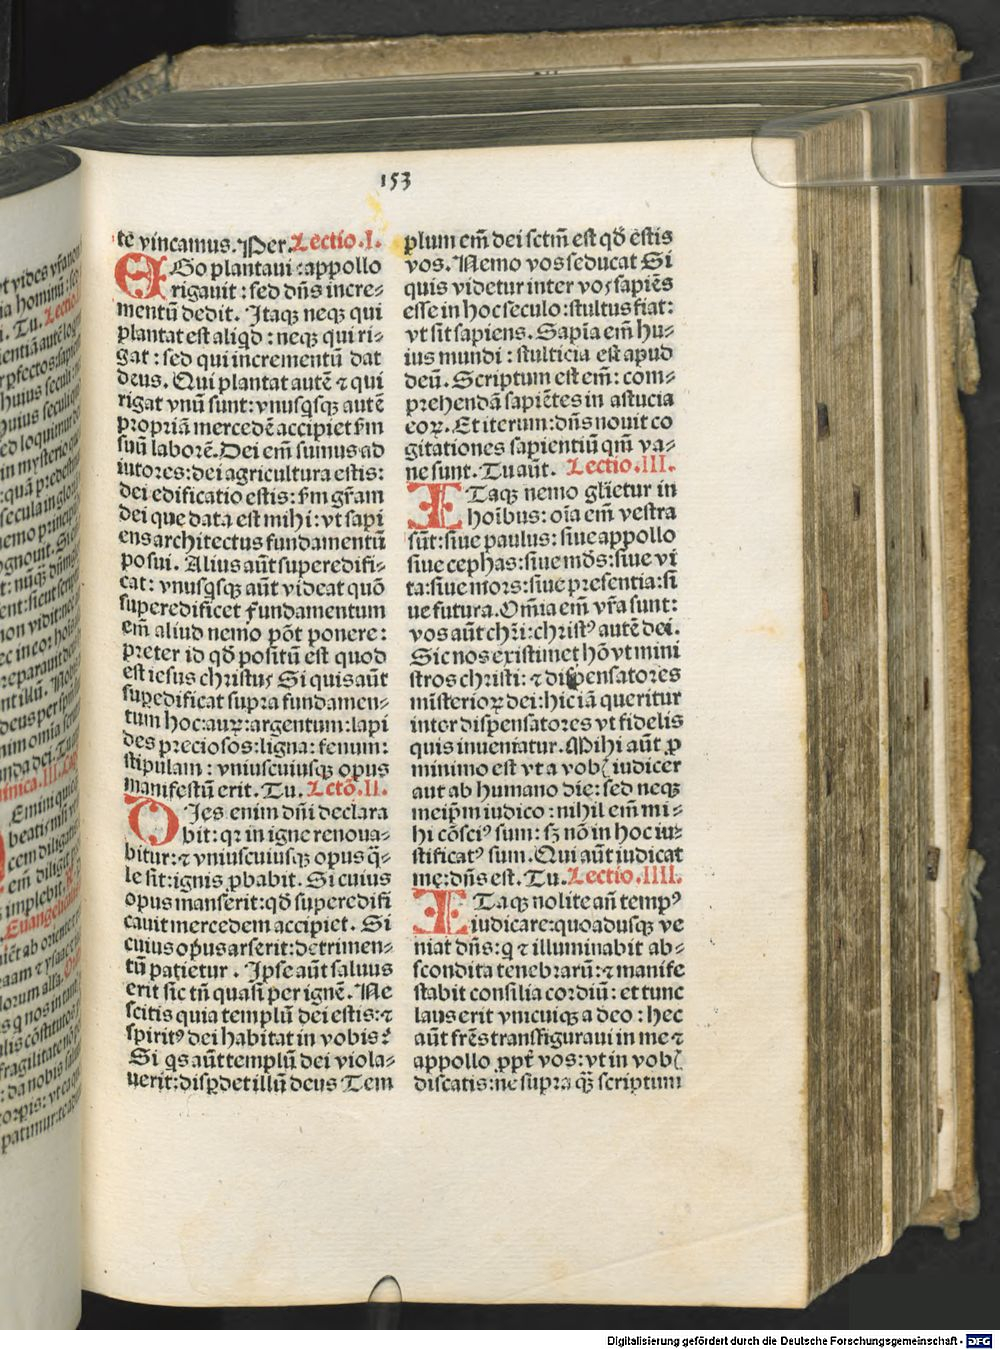 153
tē vincamus. Per. Lectio .I.
EGo plantaui : appollo
rigauit : sed dñs incre⸗
mentū dedit. Itaqꝫ neqꝫ qui
plantat est aliqd : neqꝫ qui ri⸗
gat : sed qui incrementū dat
deus. Qui plantat autē ⁊ qui
rigat vnū sunt: vnusqsqꝫ autē
propriā mercedē accipiet ẜm
suū laborē. Dei em̄ sumus ad
iutores: dei agricultura estis:
dei edificatio estis: ẜm gr̄am
dei que data est mihi : vt sapi
ens architectus fundamentū
posui. Alius aūt superedifi⸗
cat: vnusqsqꝫ aūt videat quō
superedificet fundamentum
em̄ aliud nemo pōt ponere:
preter id qd̄ positū est quod
est iesus christus Si quis aūt
suꝑedificat supra fundamen⸗
tum hoc: auꝝ: argentum: lapi
des preciosos: ligna: fenum:
stipulam : vniuscuiusqꝫ opus
manifestū erit. Tu. Lctō. II.
DIes enim dñi declara
bit: qꝛ in igne renoua⸗
bitur: ⁊ vniuscuiusqꝫ opus q̄⸗
le sit: ignis ꝓbabit. Si cuius
opus manserit: qd̄ superedifi
cauit mercedem accipiet. Si
cuius opus arserit: detrimen⸗
tū patietur . Ipse aūt saluus
erit sic tñ quasi per ignē. Ne
scitis quia templū dei estis: ⁊
spiritꝰ dei habitat in vobis?
Si qs aūt templū dei viola⸗
uerit: disꝑdet illū deus Tem
plum em̄ dei sctm̄ est qd̄ estis
vos. Nemo vos seducat Si
quis videtur inter vos sapiēs
esse in hoc seculo: stultus fiat:
vt sit sapiens. Sapīa em̄ hu⸗
ius mundi : stulticia est apud
deū. Scriptum est em̄: com⸗
prehendā sapiētes in astucia
eoꝝ. Et iterum: dñs nouit co
gitationes sapientiū qm̄ va⸗
ne sunt. Tu aūt. Lectio. III.
ITaqꝫ nemo glīetur in
hoībus: oīa em̄ vestra
sūt: siue paulus: siue appollo
siue cephas: siue mōs: siue vi
ta: siue mors: siue presentia: si
ue futura. Om̄ia em̄ vr̄a sunt:
vos aūt chr̄i: christꝰ autē dei.
Sic nos existimet hō vt mini
stros christi: ⁊ dispensatores
misterioꝝ dei: hic iā queritur
inter dispensatores vt fidelis
quis inueniatur. Mihi aūt ꝓ
minimo est vt a vobis iudicer
aut ab humano die: sed neqꝫ
meip̄m iudico : nihil em̄ mi⸗
hi cōsciꝰ sum: sꝫ nō in hoc iu⸗
stificatꝰ sum. Qui aūt iudicat
me: dñs est. Tu. Lectio. IIII.
ITaqꝫ nolite añ tempꝰ
iudicare: quoadusqꝫ ve
niat dñs: q ⁊ illuminabit ab⸗
scondita tenebrarū: ⁊ manife
stabit consilia cordiū: et tunc
laus erit vnicuiqꝫ a deo : hec
aūt fr̄es transfiguraui in me ⁊
appollo ꝓpt̄ vos: vt in vobis
discatis: ne supra qꝫ scriptum
Digitalisierung gefördert durch die Deutsche Forschungsgemeinschaft - DFG